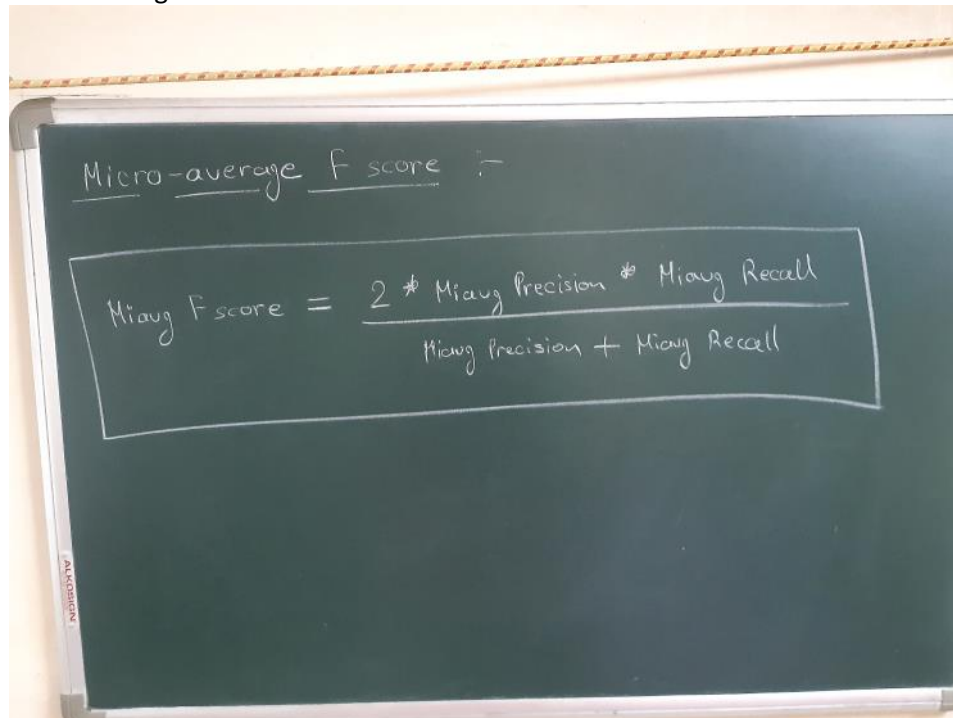 Micro-average F score :-
Miavg Fscore = 2 * Miavg Precision * Miavg Recall
Miavg Precision + Miavg Recall
ALKOSIGN